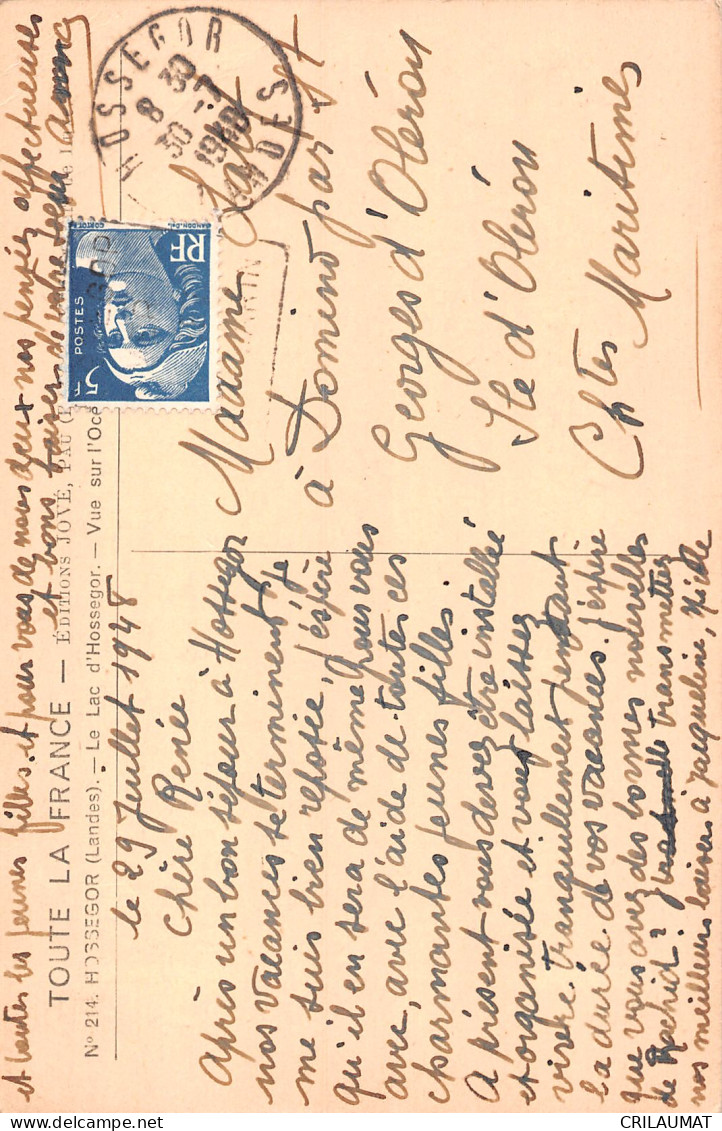 TOUTE LA FRANCE — ÉDITIONS JOVÉ, PAU
Nº 214. HOSSEGOR (Landes). — Le Lac d'Hossegor. — Vue sur l'Océ
le 29 Juillet 1948
Chère Renée
Après un bon séjour à Hossegor
nos vacances se terminent. Je
me suis bien reposée, j'espère
qu'il en sera de même pour vous
avec, avec l'aide de toutes ces
charmantes jeunes filles.
A présent vous devez être installée
et organisée et vous laissez
vivre tranquillement pendant
la durée de vos vacances. J'espère
que vous avez des bonnes nouvelles
de Rachid? transmettez
nos meilleurs baisers à Jacqueline, Nicole
et toutes les jeunes filles et pour vous de nous deux nos pensées affectueuses
et bons baisers de votre
Madame
à Domino par St
Georges d'Oléron
Ile d'Oléron
Chtes Maritimes
HOSSEGOR
8 30
30 -7
1948
LANDES
RF
POSTES
5F
GANDON-DEL.
CRILAUMAT